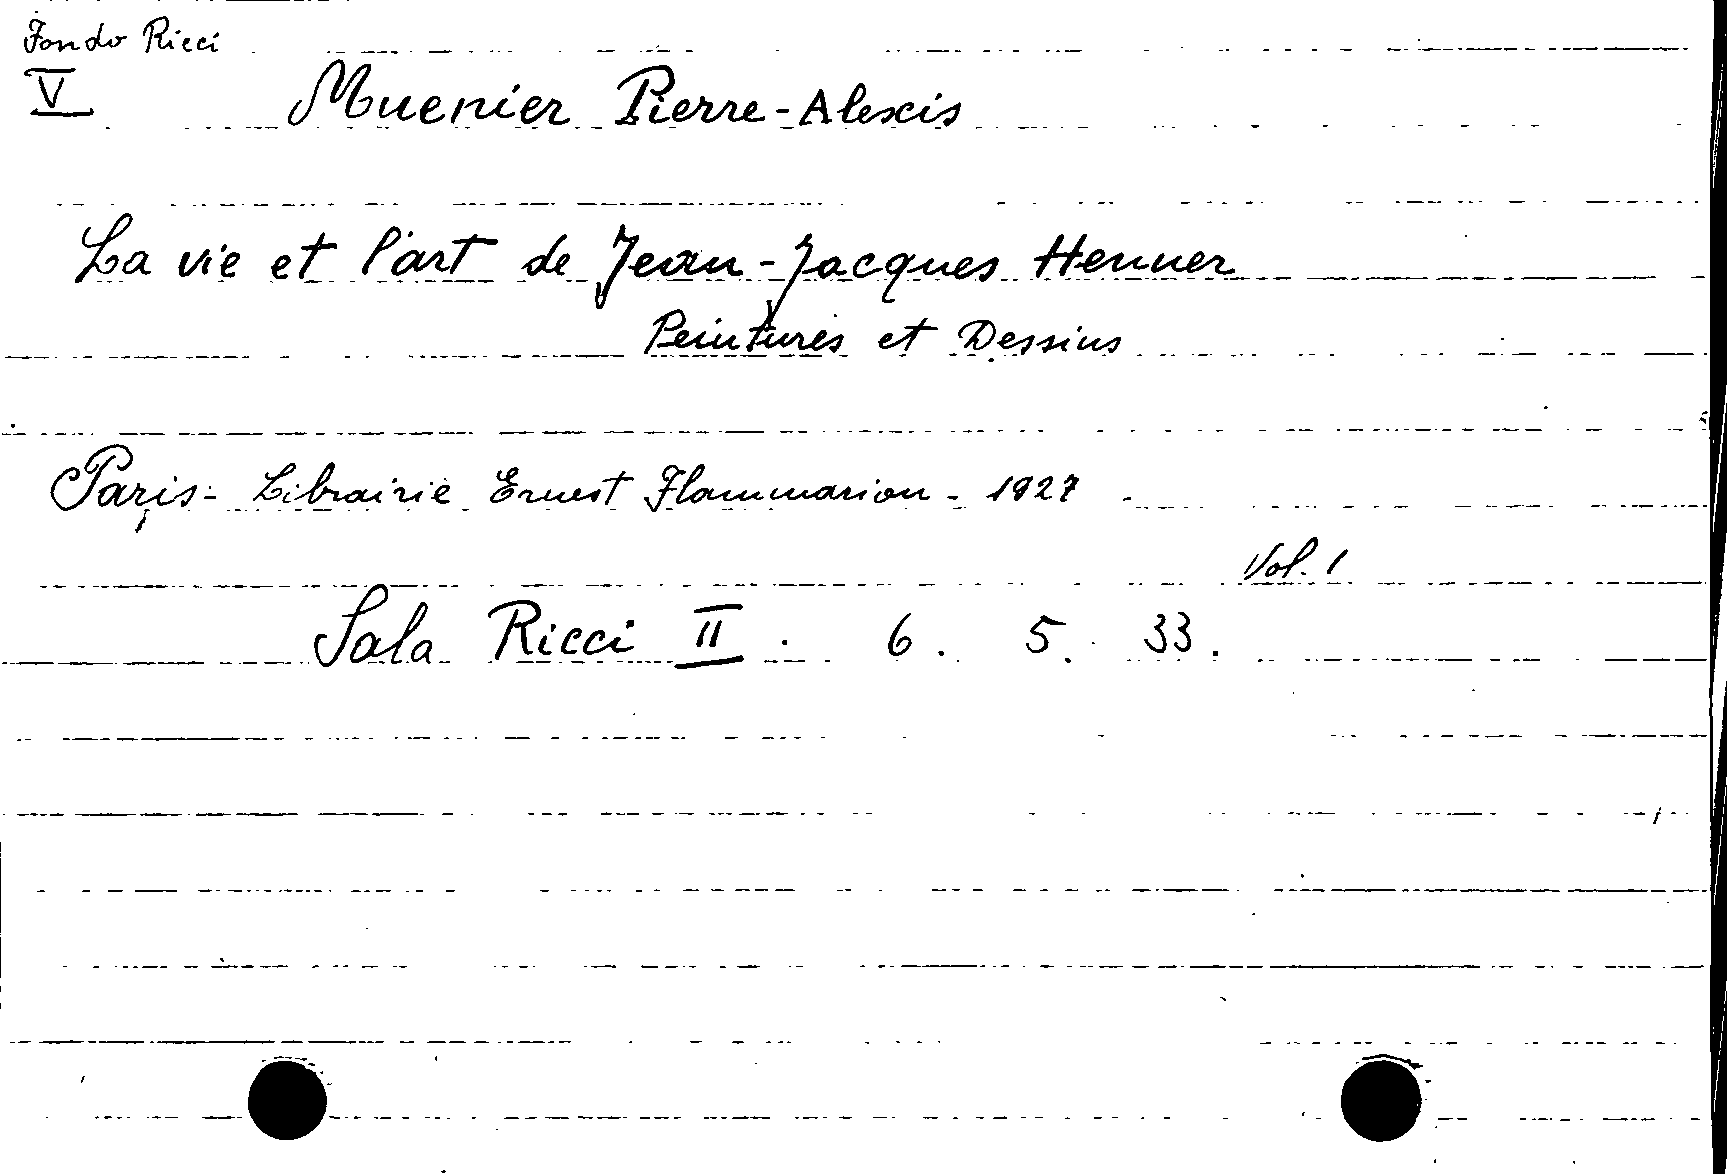 Fondo Ricci
V Muenier Pierre-Alexis
La vie et l'art de Jean-Jacques Henner
Peintures et Dessins
Paris - Librairie Ernest Flammarion - 1927 -
Vol. 1
Sala Ricci II . 6 . 5 . 33 .